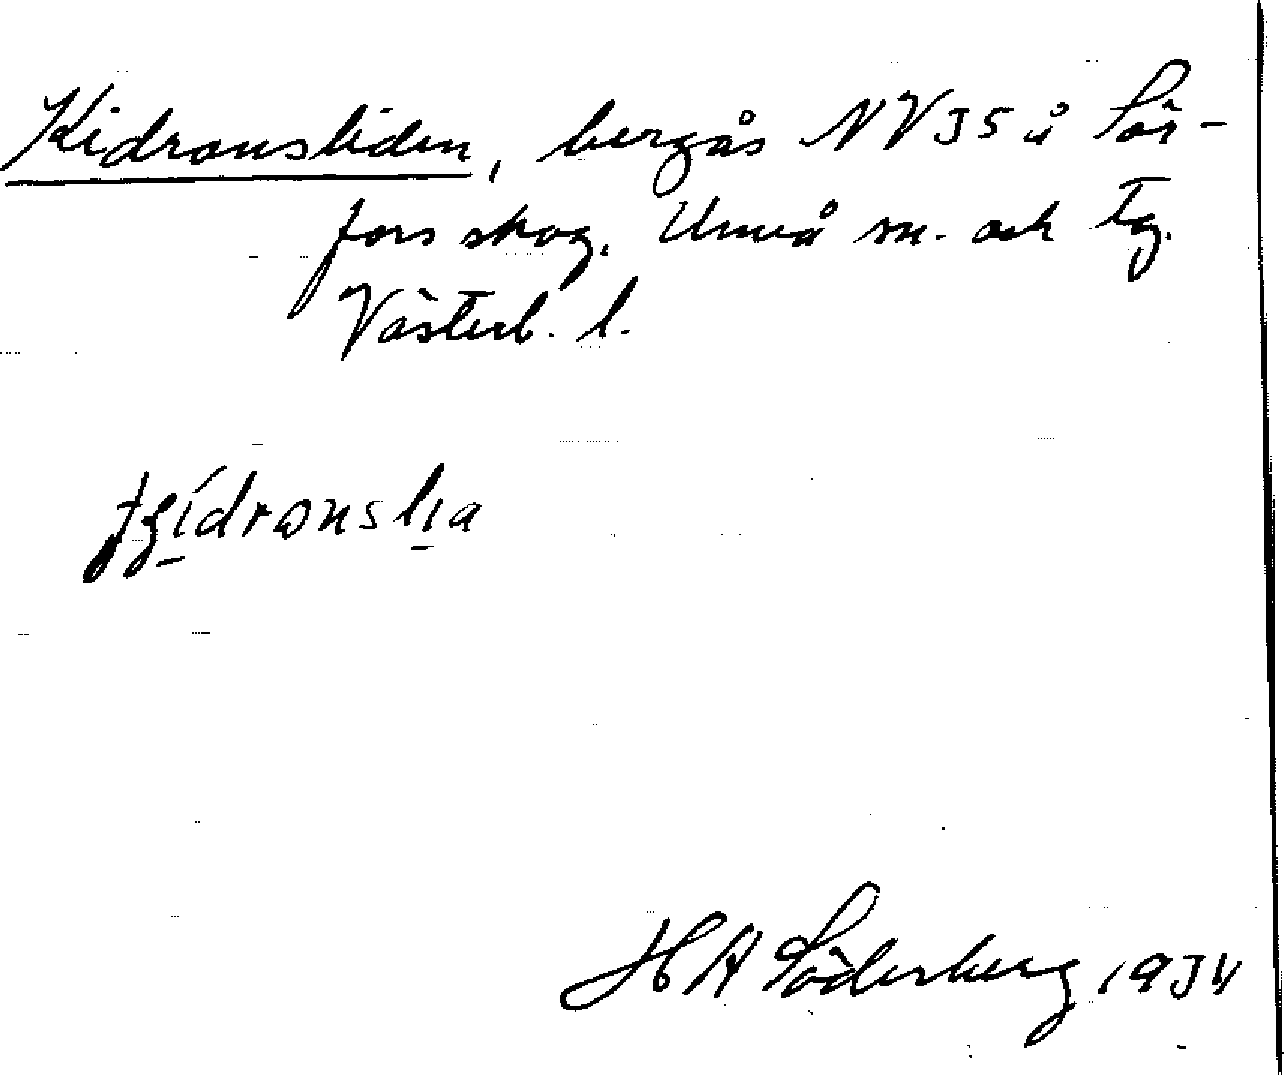 Kidronsliden, bergås NV35 å Sör-
fors skog. Umeå sn. och tg.
Västerb. l.
H A Söderberg 1934